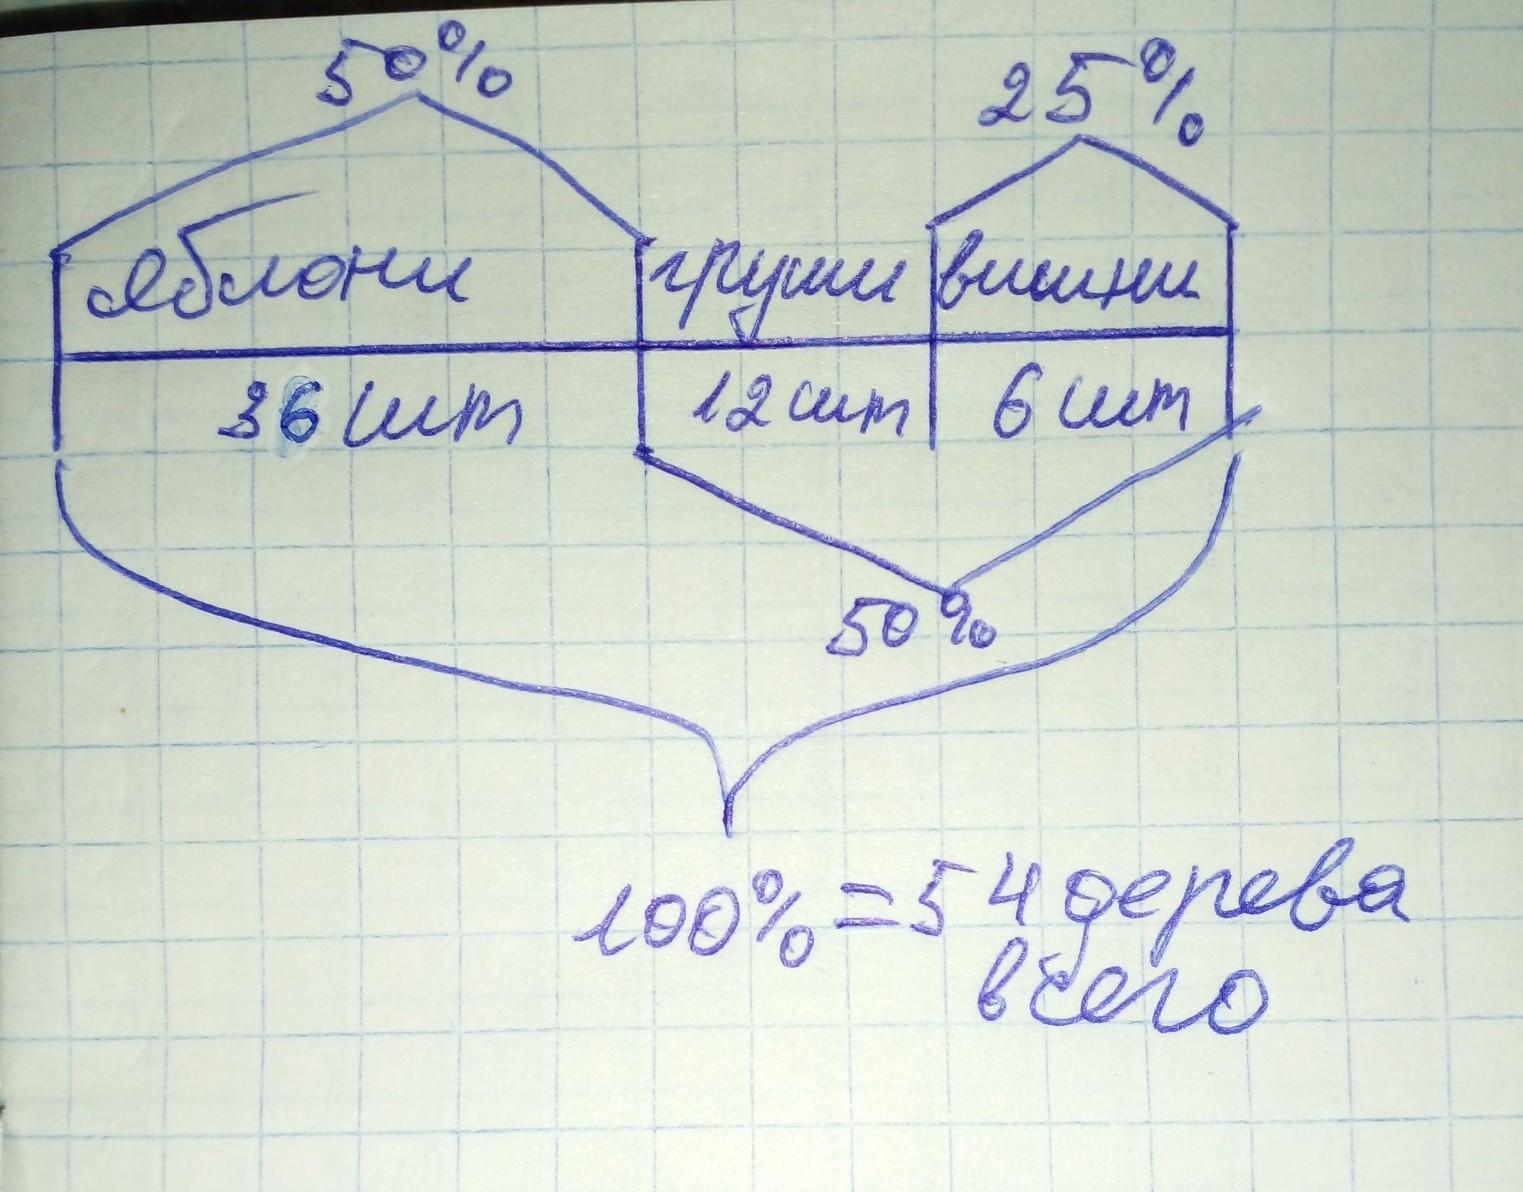 50% 25%
яблони груши вишни
36 шт 12 шт 6 шт
50%
100% = 54 дерева
всего